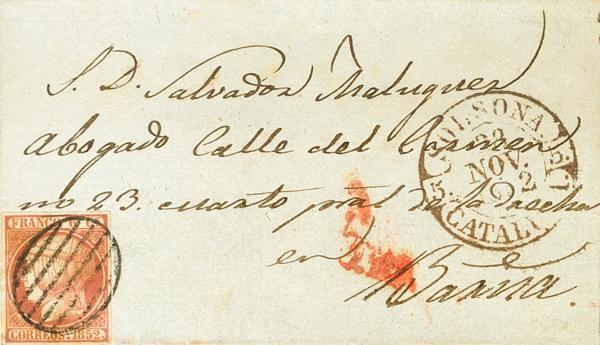 S. D. Salvador Maluquer
Abogado Calle del Carmen
no 23. cuarto pral de la
en
Barna.
SOLSONA
23
NOV.
52
CATALU
FRANCO
CORREOS. 1852.